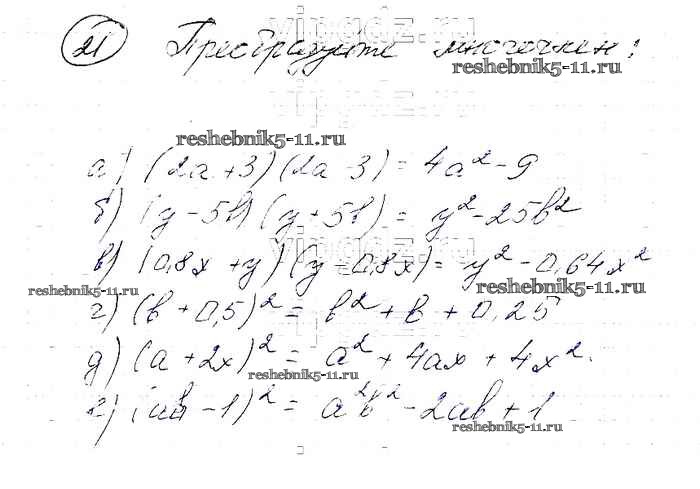 21 Преобразуйте многочлен:
vipgdz.ru
reshebnik5-11.ru
reshebnik5-11.ru
а) (2a + 3)(2a - 3) = 4a² - 9
б) (y - 5b)(y + 5b) = y² - 25b²
vipgdz.ru
в) (0,8x + y)(y - 0,8x) = y² - 0,64x²
reshebnik5-11.ru
reshebnik5-11.ru
г) (b + 0,5)² = b² + b + 0,25
д) (a + 2x)² = a² + 4ax + 4x².
reshebnik5-11.ru
е) (ab - 1)² = a²b² - 2ab + 1
reshebnik5-11.ru